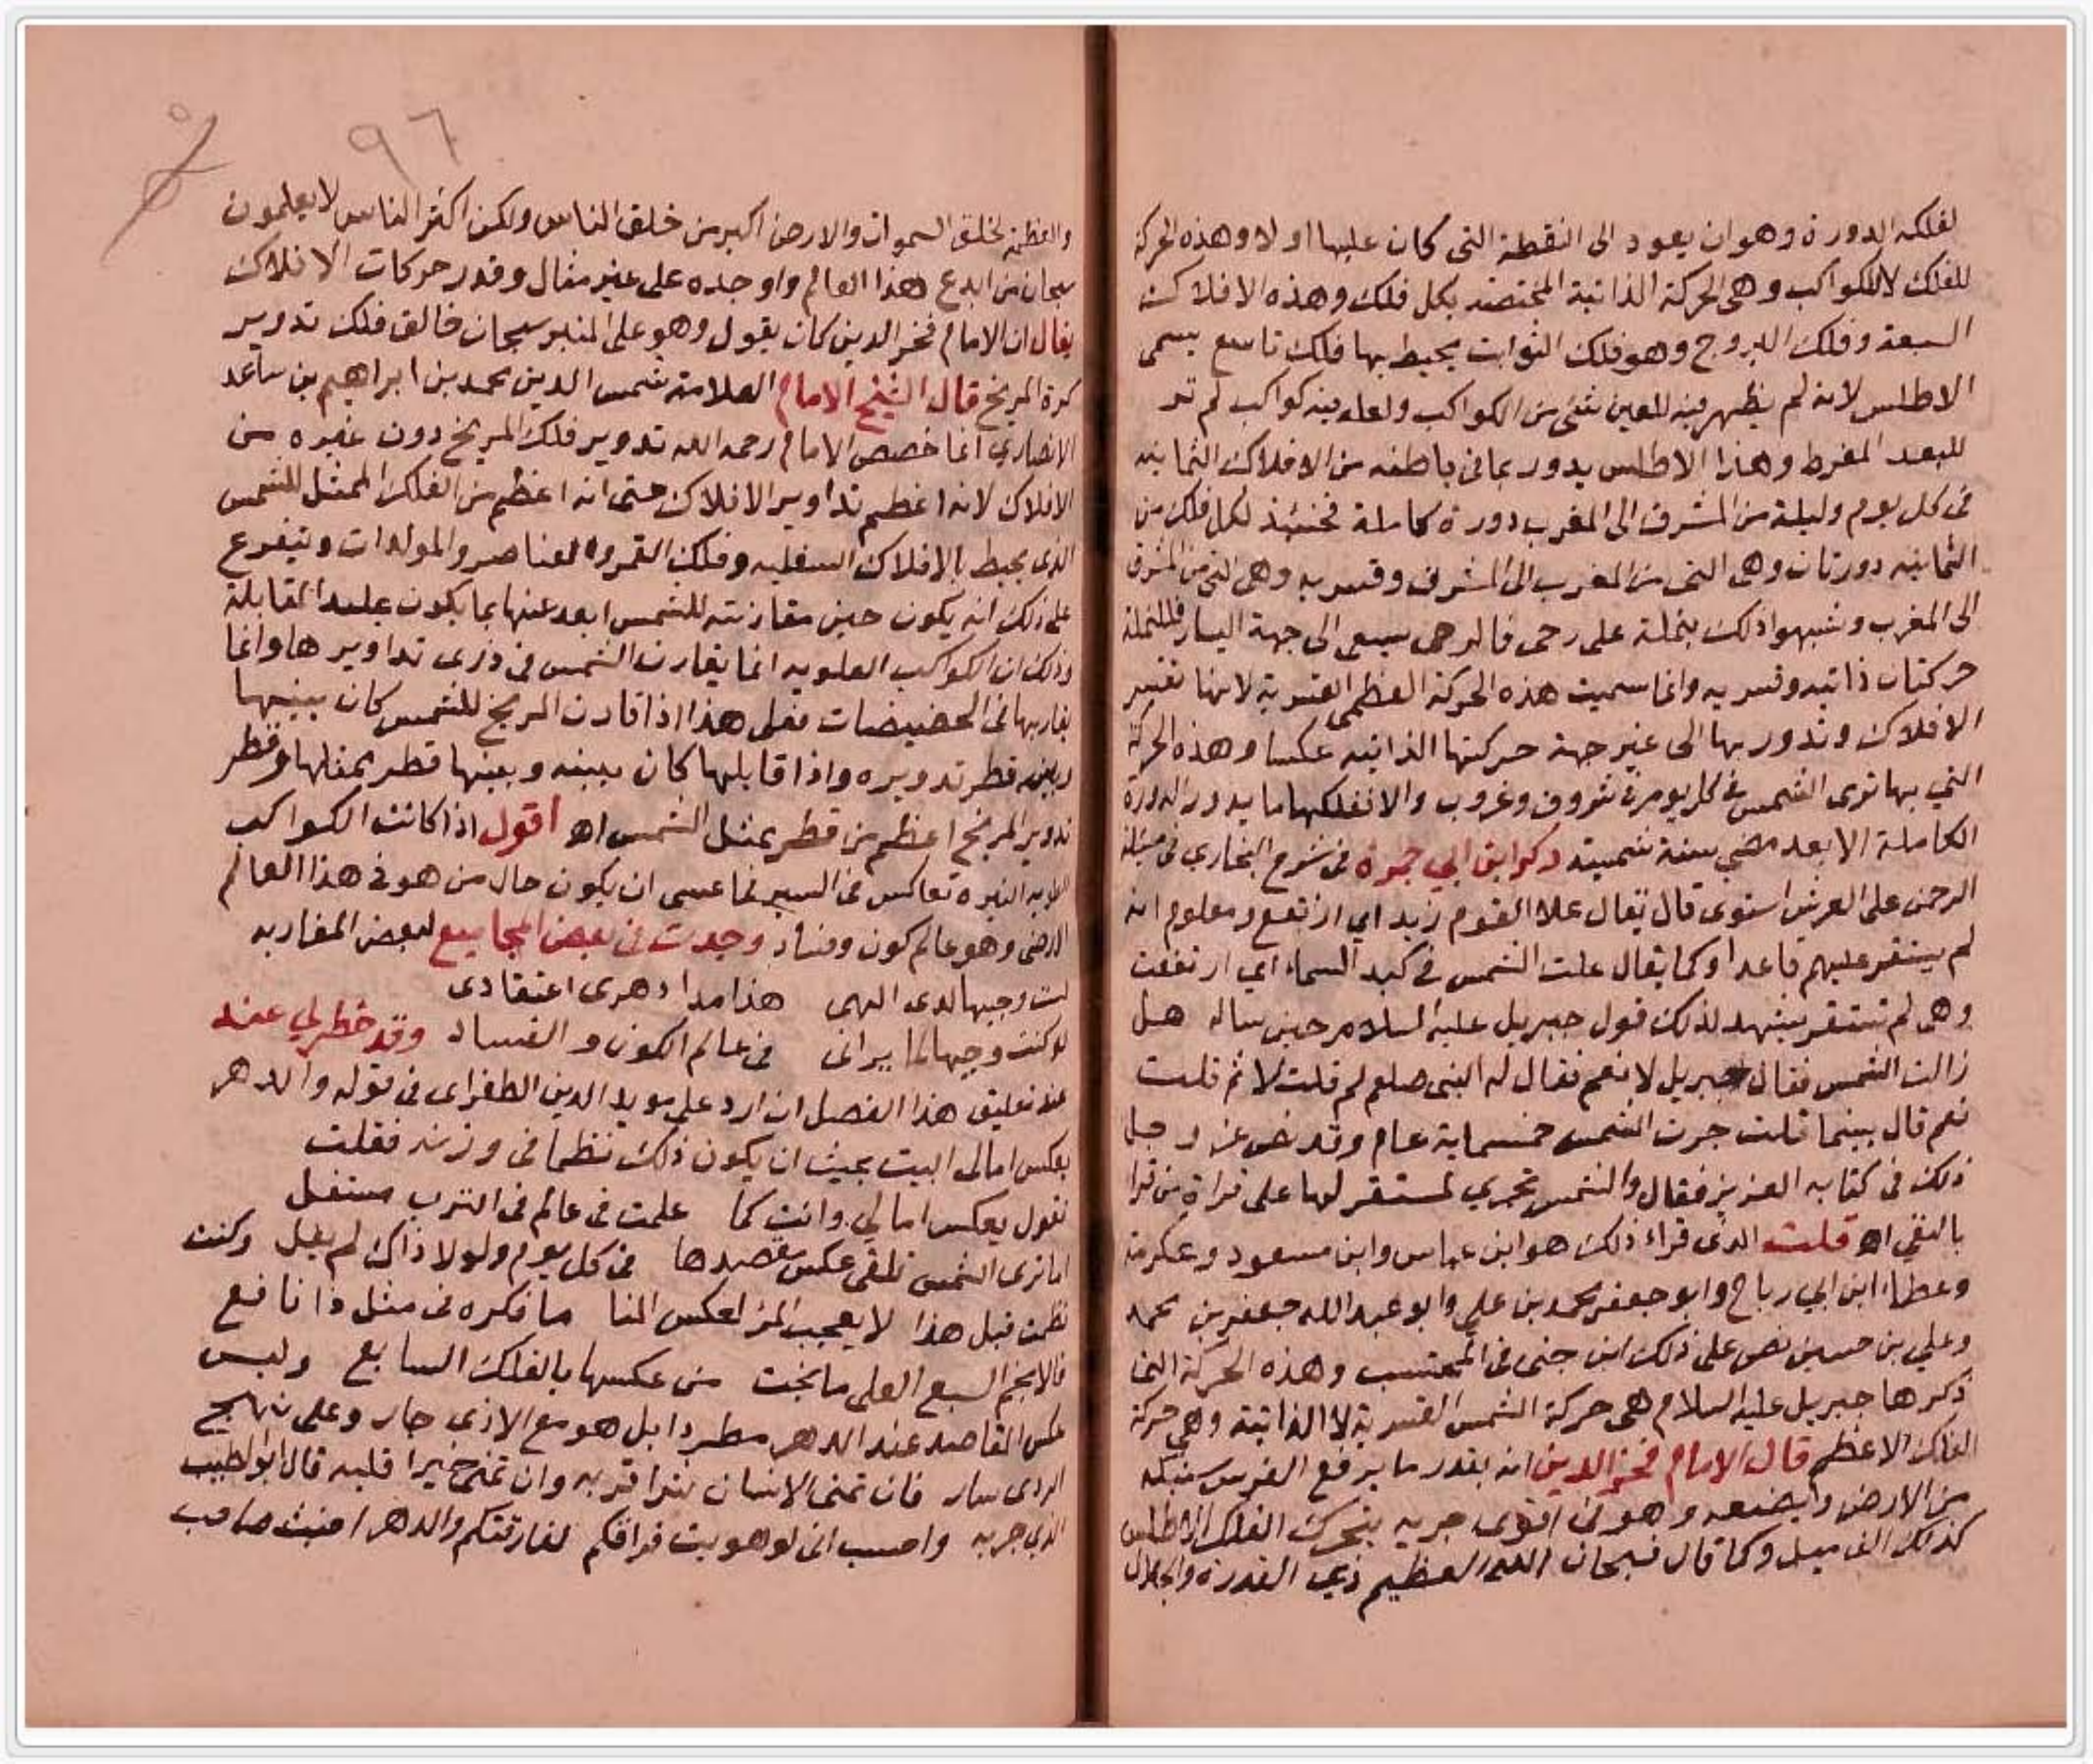 لفلكه الدورة وهو ان يعود الى النقطة التى كان عليها اولا وهذه الحركة
للفلك لا للكواكب وهى الحركة الذاتية المختصه بكل فلك وهذه الافلاك
السبعة وفلك البروج وهو فلك الثوابت يحيط بها فلك تاسع يسمى
الاطلس لانه لم يظهر فيه للعين شئ من الكواكب ولعله فيه كواكب لم تر
للبعد المفرط وهذا الاطلس يدور بما فى باطنه من الافلاك الثمانيه
فى كل يوم وليلة من المشرق الى المغرب دورة كاملة فحينئذ لكل فلك من
الثمانيه دورتان وهى التى من المغرب الى المشرق وقسريه وهى التى من المشرق
الى المغرب وشبهوا ذلك بنملة على رحى فالرحى يسعى الى جهة اليسار فللنملة
حركتان ذاتيه وقسريه وانما سميت هذه الحركة العظمى القسرية لانها تقسر
الافلاك وتدور بها الى غير جهة حركتها الذاتيه عكسا وهذه الحركة
التي بها ترى الشمس فى كل يوم فى شروق وغروب والا ففلكها ما يدور الدورة
الكاملة الا بعد مضي سنة شمسيه ذكر ابن ابي جمرة فى شرح البخاري فى مسئلة
الرحمن على العرش استوى قال يقال علا القوم زيد اي ارتفع ومعلوم انه
لم يستقر عليهم قاعدا وكما يقال علت الشمس في كبد السماء اي ارتفعت
وهى لم تستقر يشهد لذلك قول جبريل عليه السلام حين ساله هل
زالت الشمس فقال جبريل لا نعم فقال له النبى صلعم لم قلت لا ثم قلت
نعم قال بينما قلت جرت الشمس خمسماية عام وقد نص عز وجل
ذلك فى كتابه العزيز فقال والشمس تجري لمستقر لها على قراة من قرا
بالنفي اه قلت الذى قراء ذلك هو ابن عباس وابن مسعود وعكرمة
وعطاء ابن ابي رباح وابو جعفر محمد بن علي وابو عبد الله جعفر بن محمد
وعلي بن حسين نص على ذلك ابن جنى فى المحتسب وهذه الحركة التى
ذكرها جبريل عليه السلام هى حركة الشمس القسرية لا الذاتية وهى حركة
الفلك الاعظم قال الامام فخر الدين انه بقدر ما يرفع الفرس سنبكه
من الارض ويضعه وهو فى اقوى جريه يتحرك الفلك الاطلس
كذلك الف ميل وكما قال فسبحان الله العظيم ذي القدرة والجلال
والعظمة لخلق السموات والارض اكبر من خلق الناس ولكن اكثر الناس لا يعلمون
سبحان من ابدع هذا العالم واوجده على غير مثال وقدر حركات الافلاك
يقال ان الامام فخر الدين كان يقول وهو على المنبر سبحان خالق فلك تدوير
كرة المريخ قال الشيخ الامام العلامة شمس الدين محمد بن ابراهيم بن ساعد
الانصاري انما خصص الامام رحمه الله تدوير فلك المريخ دون غيره من
الافلاك لانه اعظم تداوير الافلاك حتى انه اعظم من الفلك الممثل للشمس
الذى يحيط بالافلاك السفليه وفلك القمر والعناصر والمولدات ويتفرع
على ذلك انه يكون حين مقارنته للشمس ابعد عنها بما يكون عليه المقابلة
وذلك ان الكواكب العلويه انما يقارن الشمس فى ذرى تداويرها وانما
يقاربها فى الحضيضات فعلى هذا اذا قارن المريخ للشمس كان بينها
وبينه قطر تدويره واذا قابلها كان بينه وبينها قطر بمثلها وقطر
تدوير المريخ اعظم من قطر بمثل الشمس اه اقول اذا كانت الكواكب
العلويه النيره تعاكس فى السير فما عسى ان يكون حال من هو فى هذا العالم
الارضى وهو عالم كون وفساد وجدت فى بعض المجاميع لبعض المغاربه
لست وجيها لدى الهى هذا مدا دهرى اعتقادى
لو كنت وجيها لما يرانى فى عالم الكون والفساد وقد خطر لي عند
عند تعليق هذا الفصل ان ارد على مويد الدين الطغراى فى قوله والدهر
يعكس امالى البيت بحيث ان يكون ذلك نظما فى وزنه فقلت
تقول يعكس امالي وانت كما علمت فى عالم فى الترب مستفل
اما ترى الشمس تلقى عكس مقصدها فى كل يوم ولولا ذاك لم يفل وكنت
نظمت قبل هذا لا يعجب المرء لعكس المنا ما فكره فى مثل ذا نافع
فالانجم السبع العلى ما نجت من عكسها بالفلك السابع وليس
عكس المقاصد عند الدهر مطردا بل هو مع الاذى جار وعلى نهج
الردى سار فان تمنى الانسان شرا قربه وان تمنى خيرا قلبه قال ابو الطيب
الذي جربه واحسب انى لو هويت فراقكم لفارقتكم والدهر اخبث صاحب